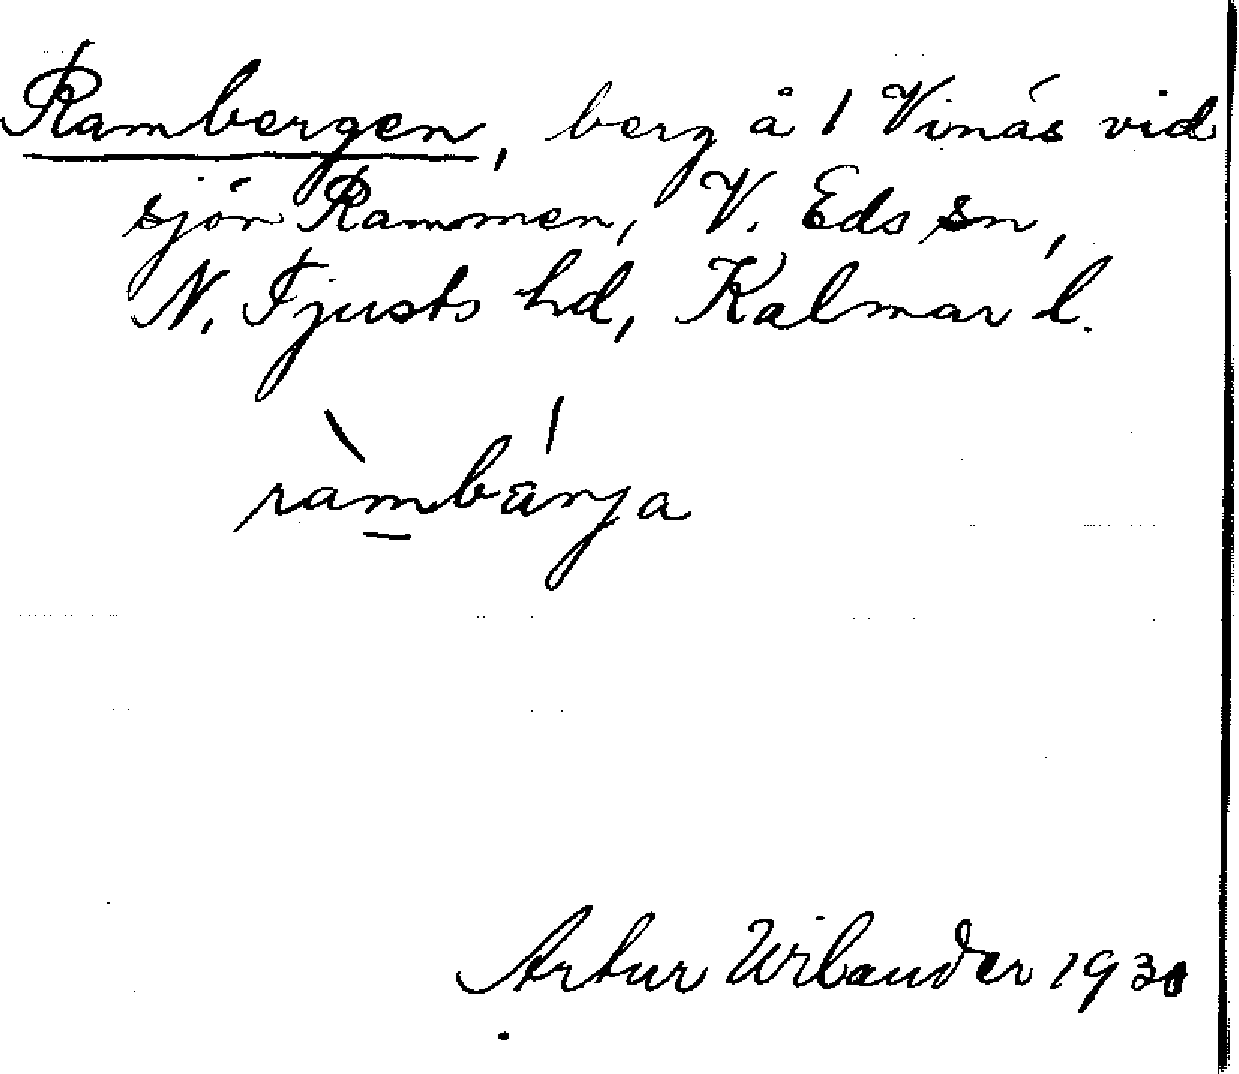 Rambergen, berg å 1 Vinäs vid
sjön Rammen, V. Eds sn,
N. Tjusts hd, Kalmar l.
ràmbárja
Artur Wilander 1931